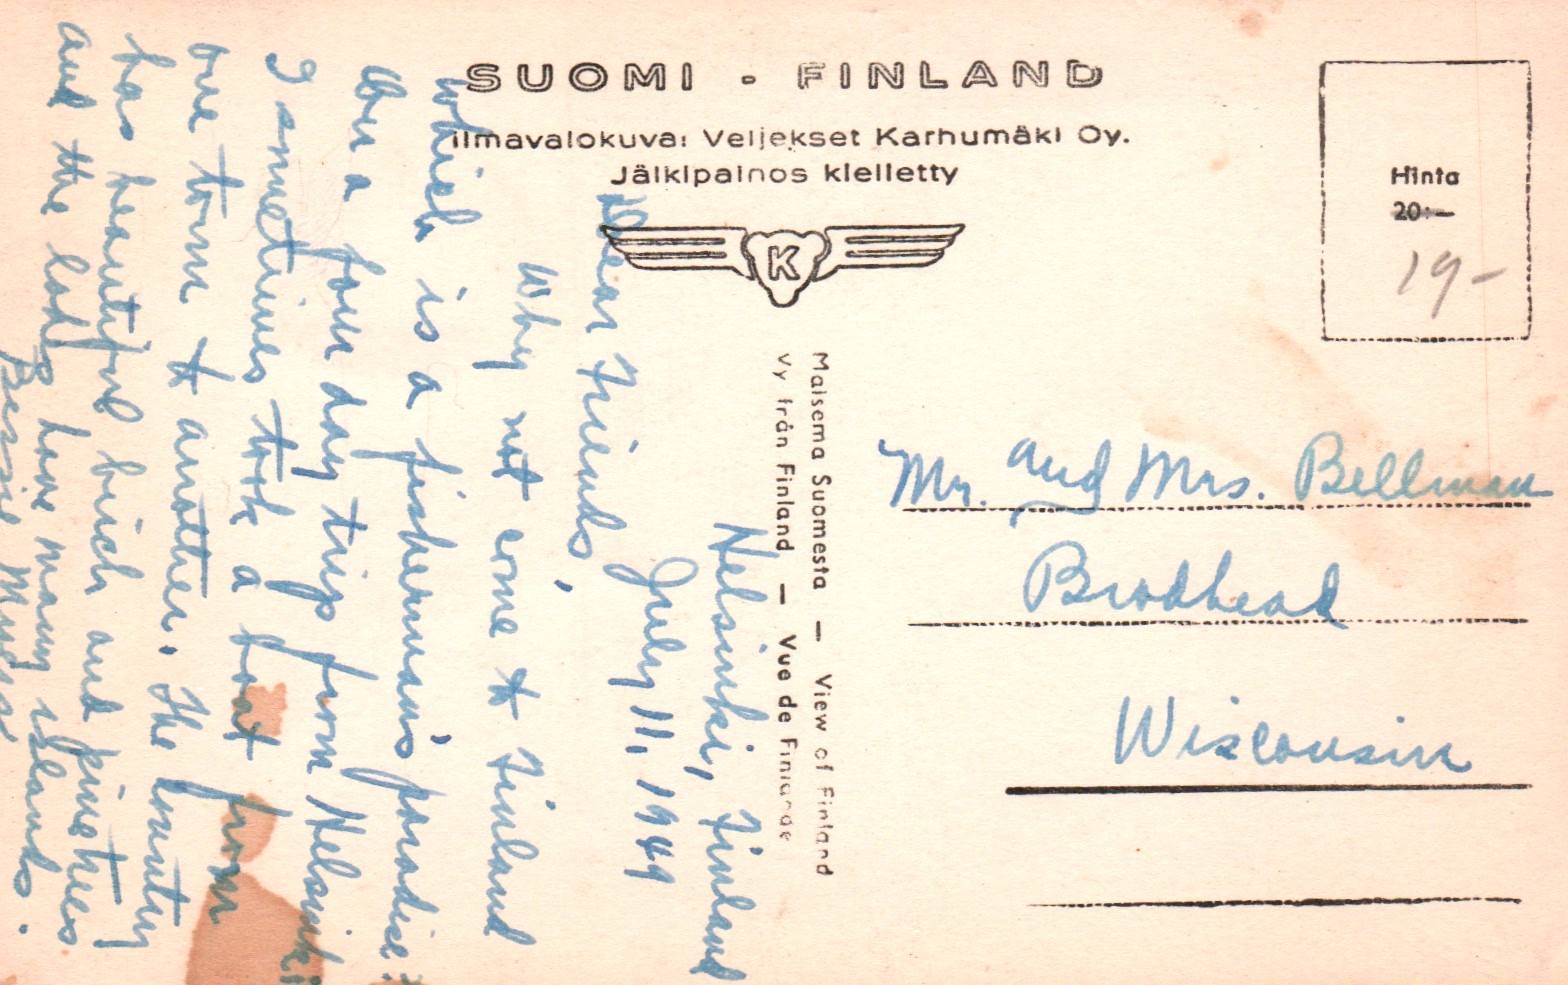 SUOMI - FINLAND
Ilmavalokuva: Veljekset Karhumäki Oy.
Jälkipainos kielletty
K
Hinta
20:-
19-
Maisema Suomesta — View of Finland
Vy från Finland — Vue de Finlande
Helsinki, Finland
July 11, 1949
Dear Friends,
Why not come to Finland
which is a fisherman's paradise?
On a four day trip from Helsinki
I sometimes took a boat from
one town to another. The country
has beautiful birch and pine trees
and the lakes have many islands.
Bessie
Mr. and Mrs. Bellman
Brodhead
Wisconsin